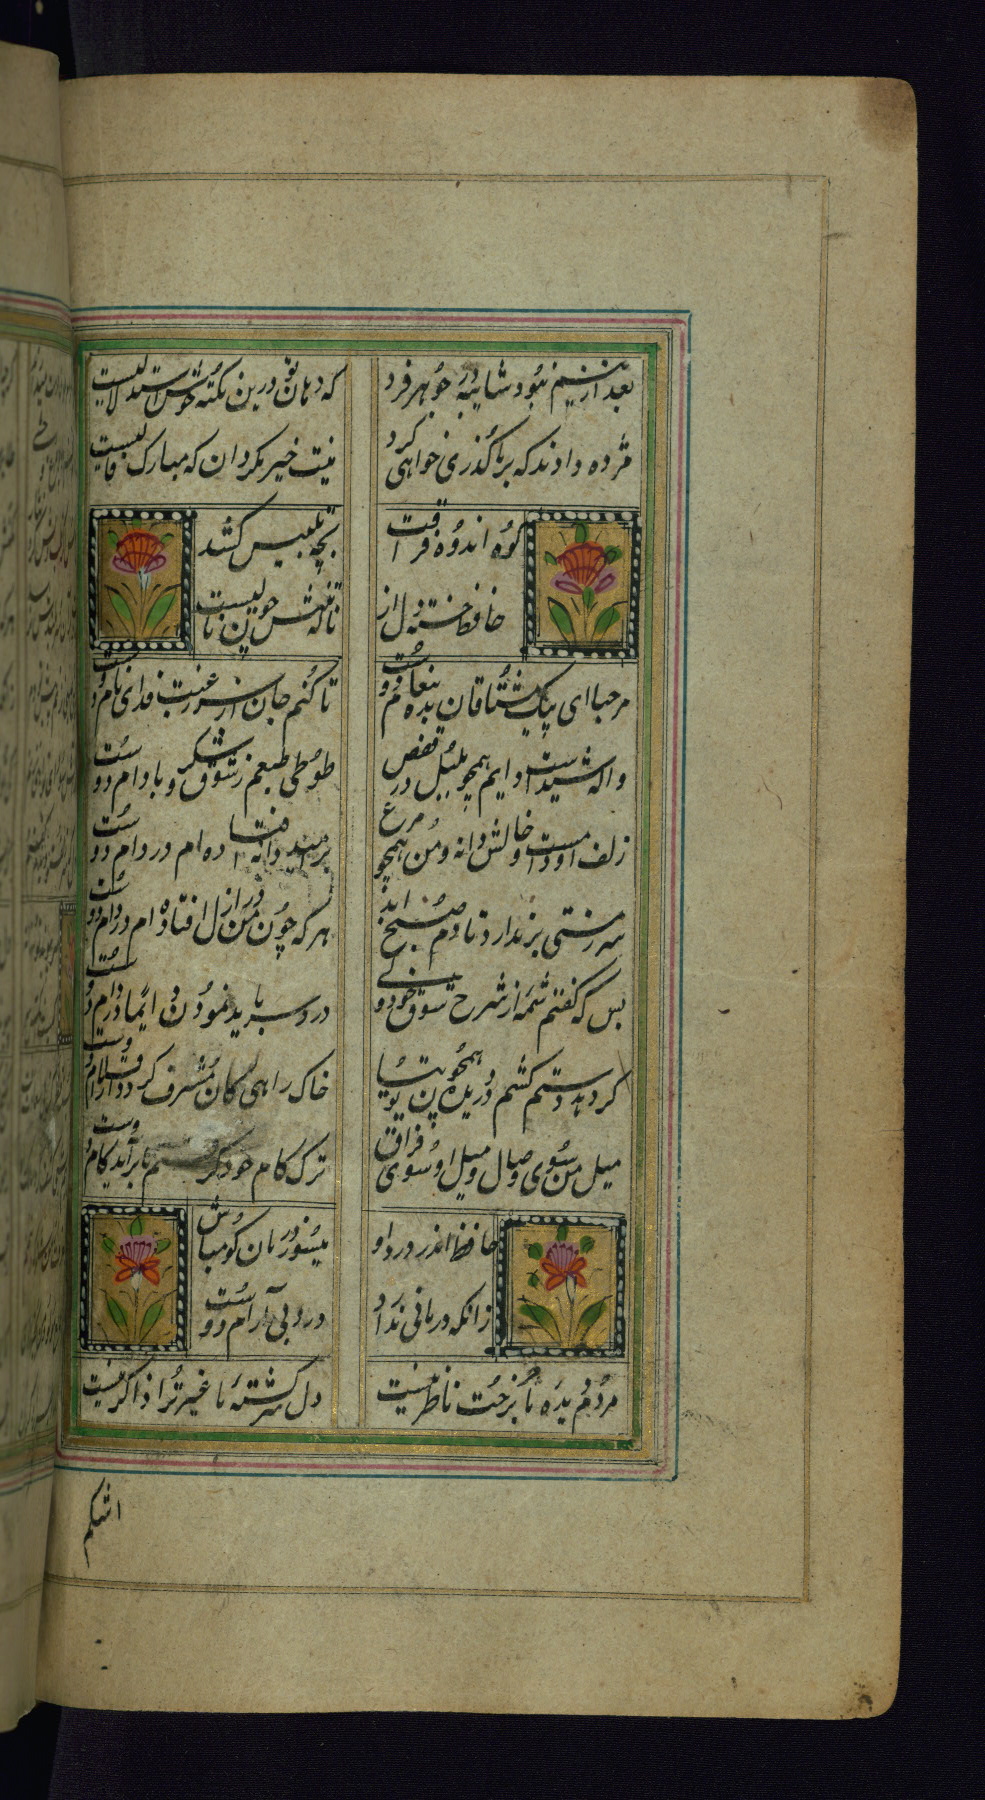 بعد ازینم نبود شایبه در جوهر فرد
که دهان تو درین نکته خوش استدلالیست
مژده دادند که بر ما گذری خواهی کرد
نیت خیر مگردان که مبارک فالیست
کوه اندوه فراقت
بچه تلبیس کشد
حافظ خسته دل از
ناله تنش چون نالیست
مرحبا ای پیک مشتاقان بده پیغام دوست
تا کنم جان از سر رغبت فدای نام دوست
واله شیداست دایم همچو بلبل در قفص
طوطی طبعم ز شوق شکر و بادام دوست
زلف او دامست و خالش دانه و من همچو مرغ
بر امید دانه افتاده ام در دام دوست
سر ز مستی بر ندارد تا دم صبح ابد
هر که چون من از ازل افتاده ام در دام دوست
بس که گفتم شمه از شرح شوق خود ولی
درد سر باید نمودن ایما دارم دوست
گر دهد دستم کشم در دیده همچون توتیا
خاک راهی کان مشرف گردد از اقدام دوست
میل من سوی وصال و میل او سوی فراق
ترک کام خود گرفتم تا برآید کام دوست
حافظ اندر درد او
میسوز و درمان گو مباش
زانکه درمانی ندارد
درد بی آرام دوست
مردم دیده ما جز برخت ناظر نیست
دل سرکشته ما غیر ترا ذاکر نیست
اشکم